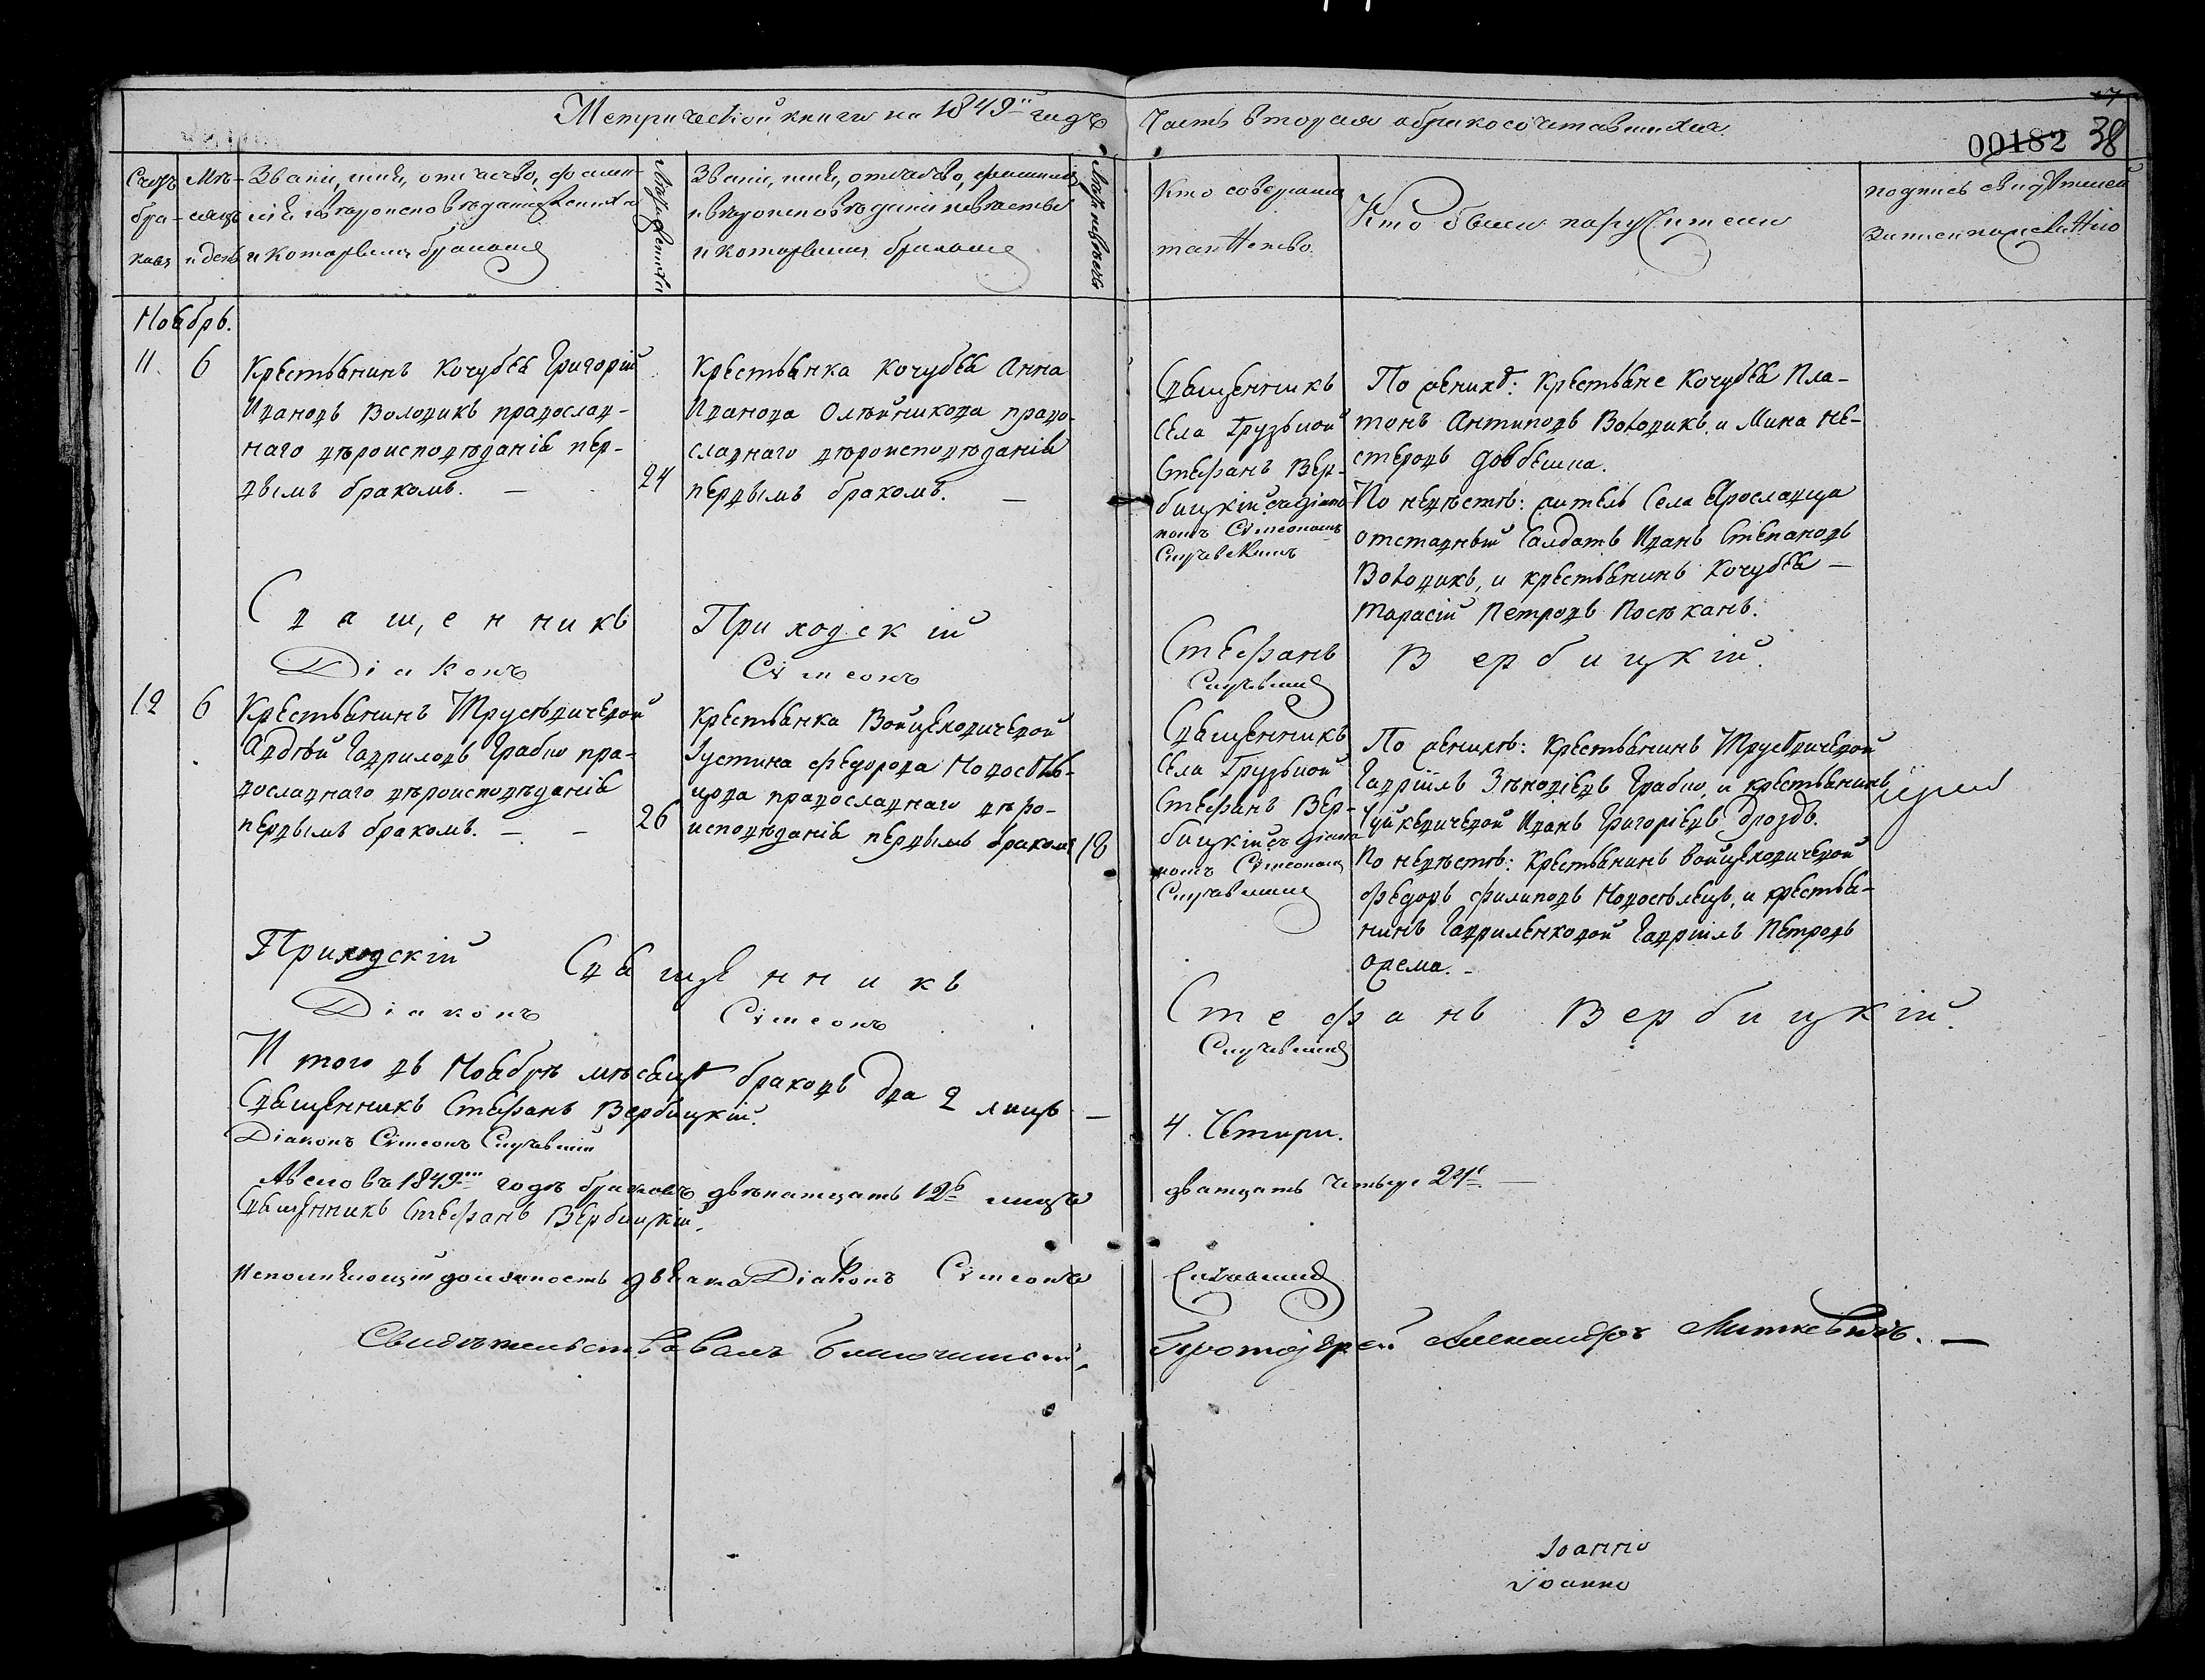 Метрической книги на 1849й годъ Часть вторая о бракосочетавшихся.
00182 38
Счетъ браковъ
Мѣсяцъ и день
Званіе, имя, отчество, фамилія и вѣроисповѣданіе жениха
и которымъ бракомъ
Лѣта жениха
Званіе, имя, отчество, фамилія
и вѣроисповѣданіе невѣсты
и которымъ бракомъ
Лѣта невѣсты
Кто совершалъ
таинство
Кто были поручители
подпись свидѣтелей
записи по желанію
Ноябрь.
11. 6
Крестьянинъ Кочубея Григорій
Ивановъ Воловикъ православ-
наго вѣроисповѣданія пер-
вымъ бракомъ. —
24
Крестьянка Кочубея Анна
Иванова Олѣйникова право-
славнаго вѣроисповѣданія
первымъ бракомъ. —
Священникъ
села Грузской
Стефанъ Вер-
бицкій съ діако-
номъ Сѵмеономъ
По женихѣ: Крестьяне Кочубея Пла-
тонъ Антиповъ Воловикъ, и Мина Не-
стеровъ Довбешка.
По невѣстѣ: житель села Ярославца
отставный салдатъ Иванъ Степановъ
Воловикъ, и крестьянинъ Кочубея —
Тарасій Петровъ Посѣканъ.
Священникъ Приходскій Стефанъ Вербицкій.
Діаконъ Сѵмеонъ
12 6
Крестьянинъ Трусѣвичевой
Авдѣй Гавриловъ Грабко пра-
вославнаго вѣроисповѣданія
первымъ бракомъ. — —
26
Крестьянка Войцеховичевой
Іустина Федорова Новосѣль-
цова православнаго вѣро-
исповѣданія первымъ бракомъ
18
Священникъ
села Грузской
Стефанъ Вер-
бицкій съ діако-
номъ Сѵмеономъ
По женихѣ: Крестьянинъ Трусѣвичевой
Гавріилъ Зѣновіевъ Грабко, и крестьянинъ
Иванъ Григоріевъ Дроздъ.
По невѣстѣ: Крестьянинъ Войцеховичевой
Федоръ Филиповъ Новосѣлецъ, и крестья-
нинъ Гавриленковой Гавріилъ Петровъ
Приходскій Священникъ Стефанъ Вербицкій.
Діаконъ Сѵмеонъ
Итого въ Ноябрѣ мѣсяцѣ браковъ два 2 лицъ — 4. Четыри.
Священникъ Стефанъ Вербицкій.
Діаконъ Сѵмеонъ
А всего въ 1849мъ годѣ браковъ двѣнатцать 12ь лицъ двацать четыре 24е —
Священникъ Стефанъ Вербицкій.
Исполняющій должность дьячка Діаконъ Сѵмеонъ
Свидѣтельствовалъ благочинный, Протоіерей Александръ Миткевичъ. —
Іоанно
Іоанно